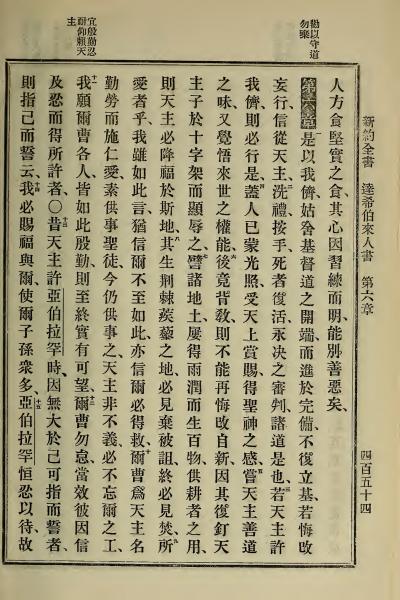 新約全書 達希伯來人書 第六章 四百五十四
勸以守道
勿棄
人方食堅實之食、其心因習練而明、能別善惡矣、
第六章 是以我儕姑畧基督道之開端、而進於完備、不復立基、若悔改
妄行、信從天主、洗禮按手、死者復活、永决之審判、諸道是也、若天主許
我儕則必行是、蓋人已蒙光照、受天上賞賜、得聖神之感、嘗天主善道
之味、又覺悟來世之權能、後竟背敎、則不能再悔改自新、因其復釘天
主子於十字架而顯辱之、譬諸地土、屢得雨潤而生百物、供耕者之用、
則天主必降福於斯地、其生荆棘蒺藜之地、必見棄被詛、終必見焚、所
愛者乎、我雖如此言、猶信爾不至如此、亦信爾必得救、爾曹爲天主名
勤勞而施仁愛、素供事聖徒、今仍供事之、天主非不義、必不忘爾之工、
我願爾曹各人、皆如此殷勤、則至終實有可望、爾曹勿怠、當效彼因信
及忍而得所許者、〇昔天主許亞伯拉罕時、因無大於己可指而誓者、
則指己而誓云、我必賜福與爾、使爾子孫衆多、亞伯拉罕恒忍以待、故
宜殷勤忍
耐仰賴天
主